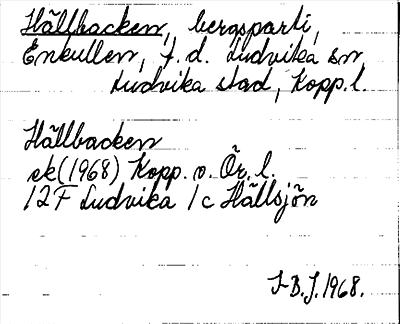 Hällbacken, bergsparti,
Enkullen, f.d. Ludvika sn
Ludvika stad, Kopp.l.
Hällbacken
ek(1968) Kopp. o. Ör. l.
12F Ludvika 1c Hällsjön
I-B.J. 1968.